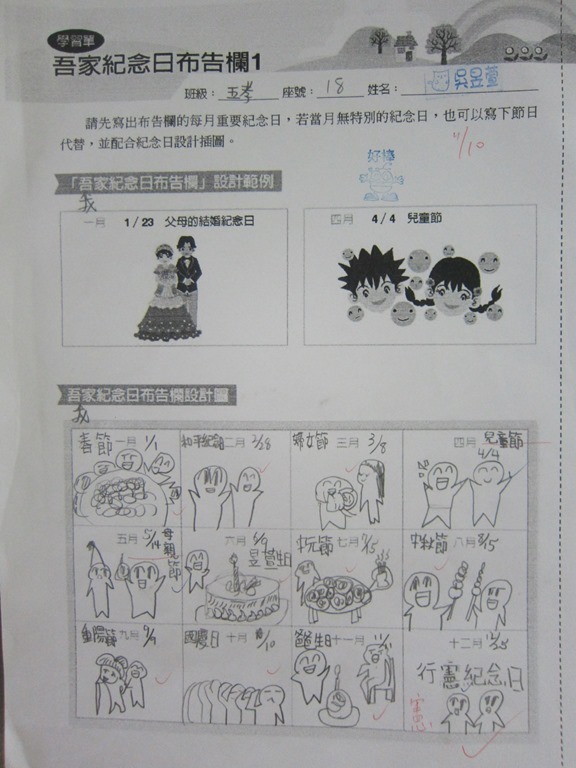 學習單
吾家紀念日布告欄1
班級：五孝 座號：18 姓名：吳昱萱
請先寫出布告欄的每月重要紀念日，若當月無特別的紀念日，也可以寫下節日
代替，並配合紀念日設計插圖。
11/10
好棒
「吾家紀念日布告欄」設計範例
我
一月 1/23 父母的結婚紀念日
四月 4/4 兒童節
吾家紀念日布告欄設計圖
我
春節 一月 1/1
和平紀念 二月 2/28
婦女節 三月 3/8
四月 兒童節 4/4
五月 5/14 母親節
六月 6/9 昱萱生日
中元節 七月 7/15
中秋節 八月 8/15
重陽節 九月 9/9
國慶日 十月 10/10
爸爸生日 十一月
十二月 12/25
行憲紀念日
憲